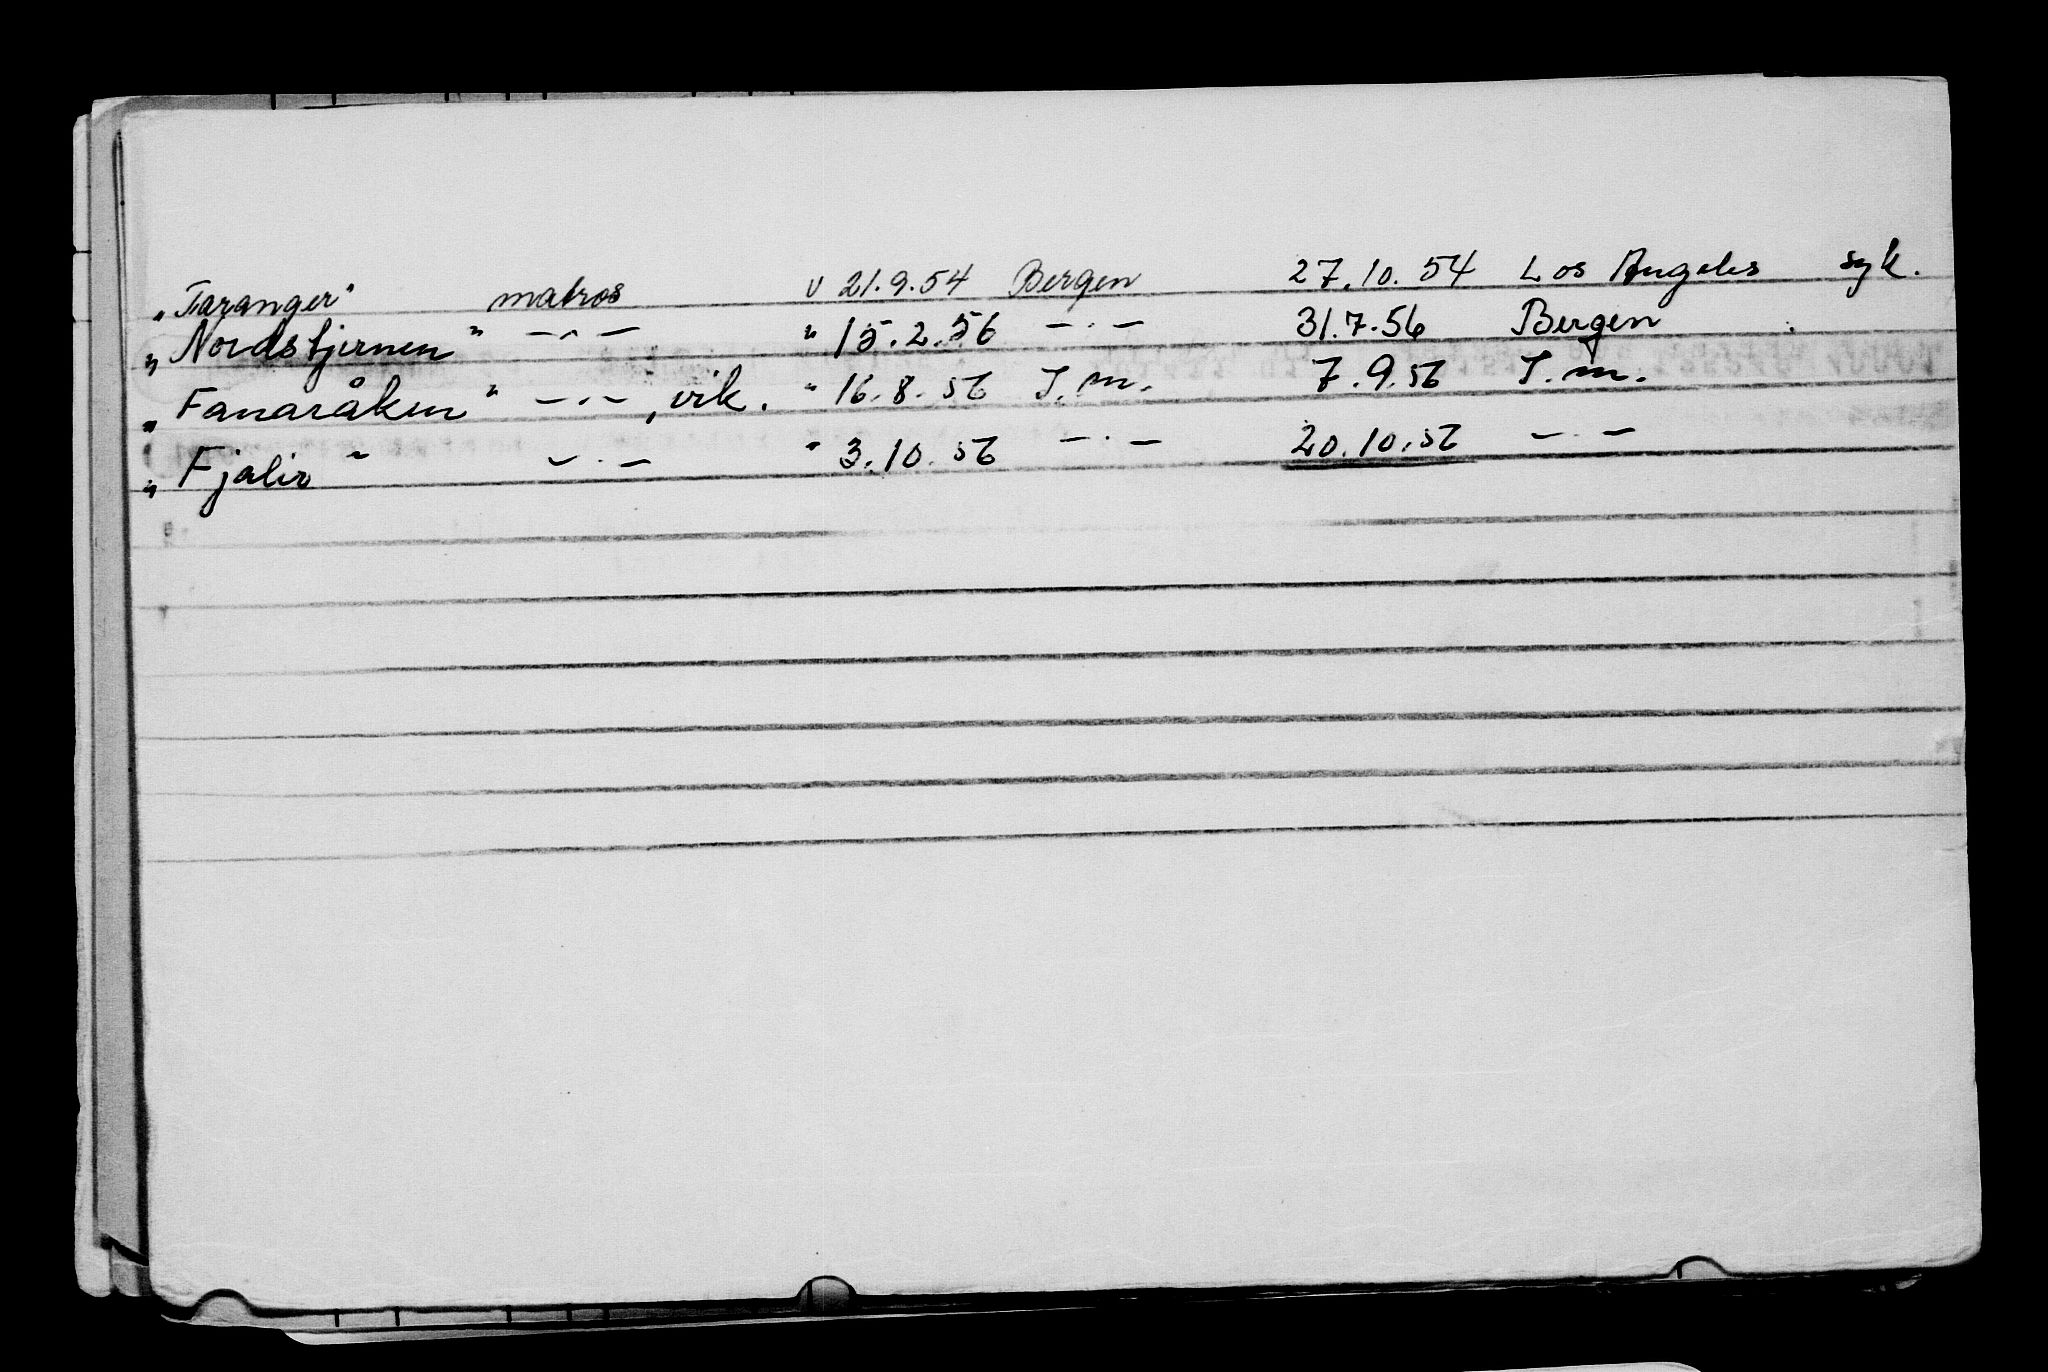 „Taranger" matros v 21.9.54 Bergen 27.10.54 Los Angeles syk.
„Nordstjernen" —"— " 15.2.56 —"— 31.7.56 Bergen
„Fanaråken" —"—, vik. " 16.8.56 I.m. 7.9.56 I.m.
„Fjalir" —"— " 3.10.56 —"— 20.10.56 —"—